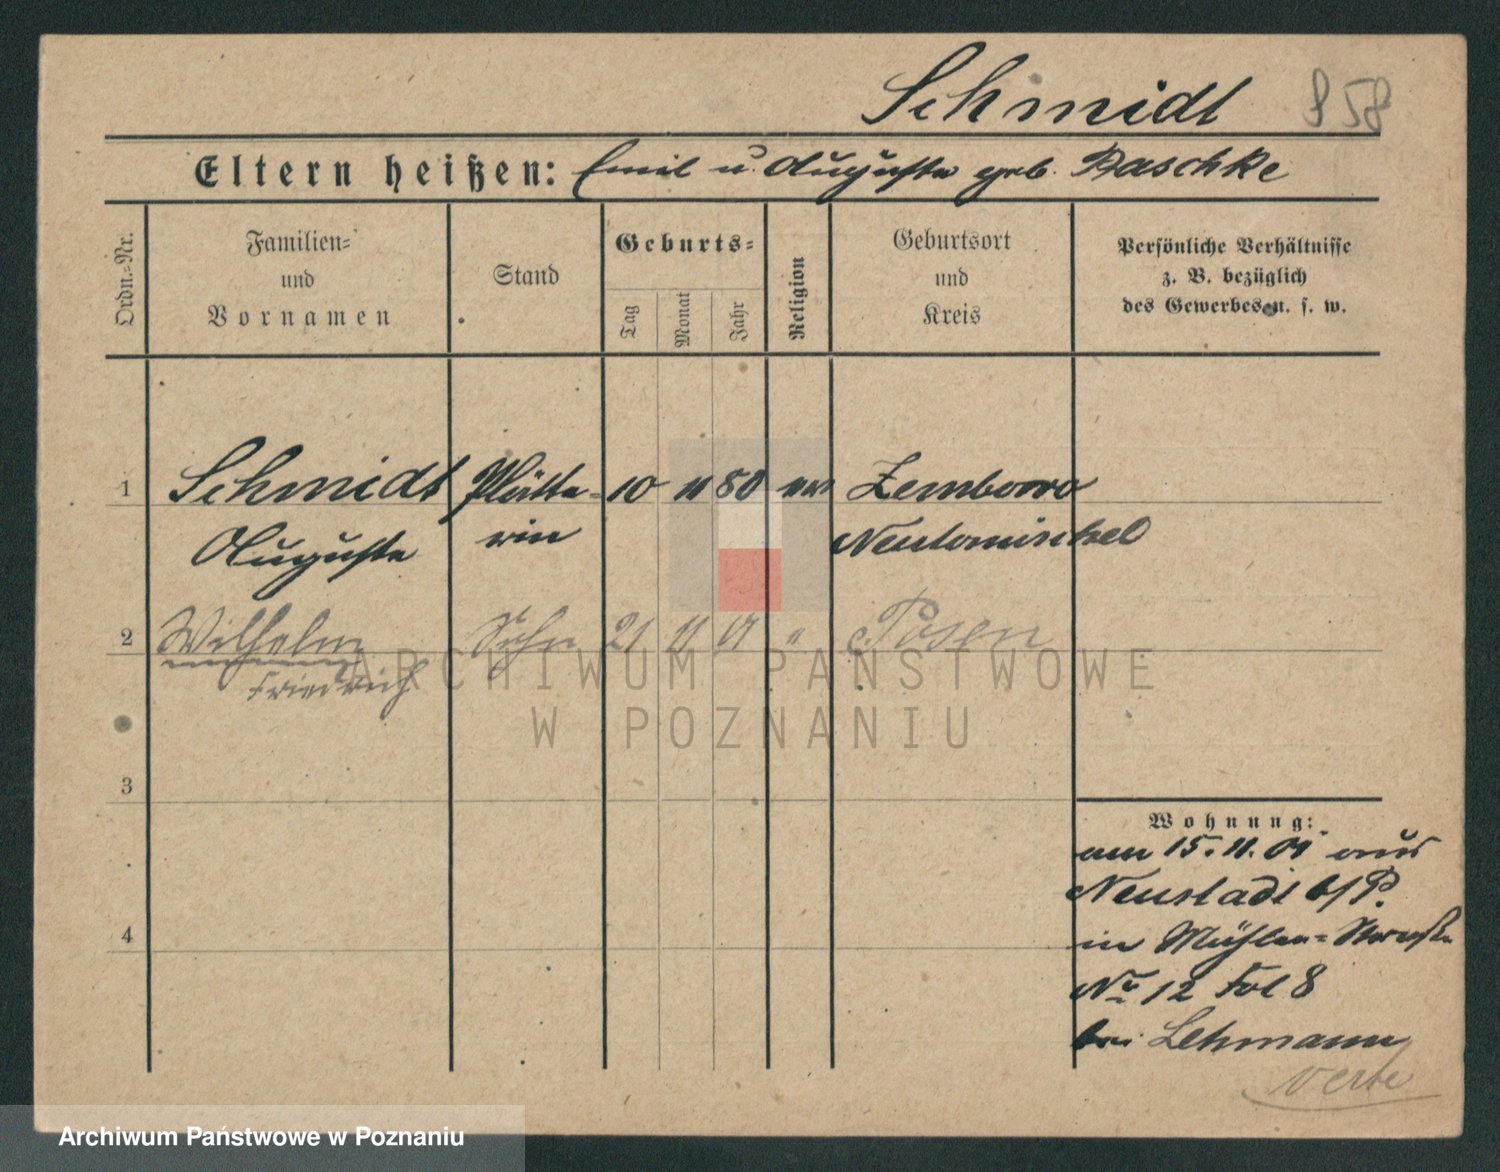 Schmidt 858
Eltern heißen: Emil u. Auguste geb. Raschke
Ordn.-Nr.
Familien-
und
Vornamen
Stand
Geburts-
Tag
Monat
Jahr
Religion
Geburtsort
und
Kreis
Persönliche Verhältnisse
z. B. bezüglich
des Gewerbes u. s. w.
1 Schmidt Plätte- 10 11 80 Zemborro
Auguste rin Neutomischel
2 Wilhelm Sohn 21 11 01 " Posen
Friedrich
ARCHIWUM PAŃSTWOWE
W POZNANIU
3
4
Wohnung:
am 15. 11. 01 aus
Neustadt b/P.
in Mühlen-Strasse
No 12 Fol 8
bei Lehmann
verte
Archiwum Państwowe w Poznaniu